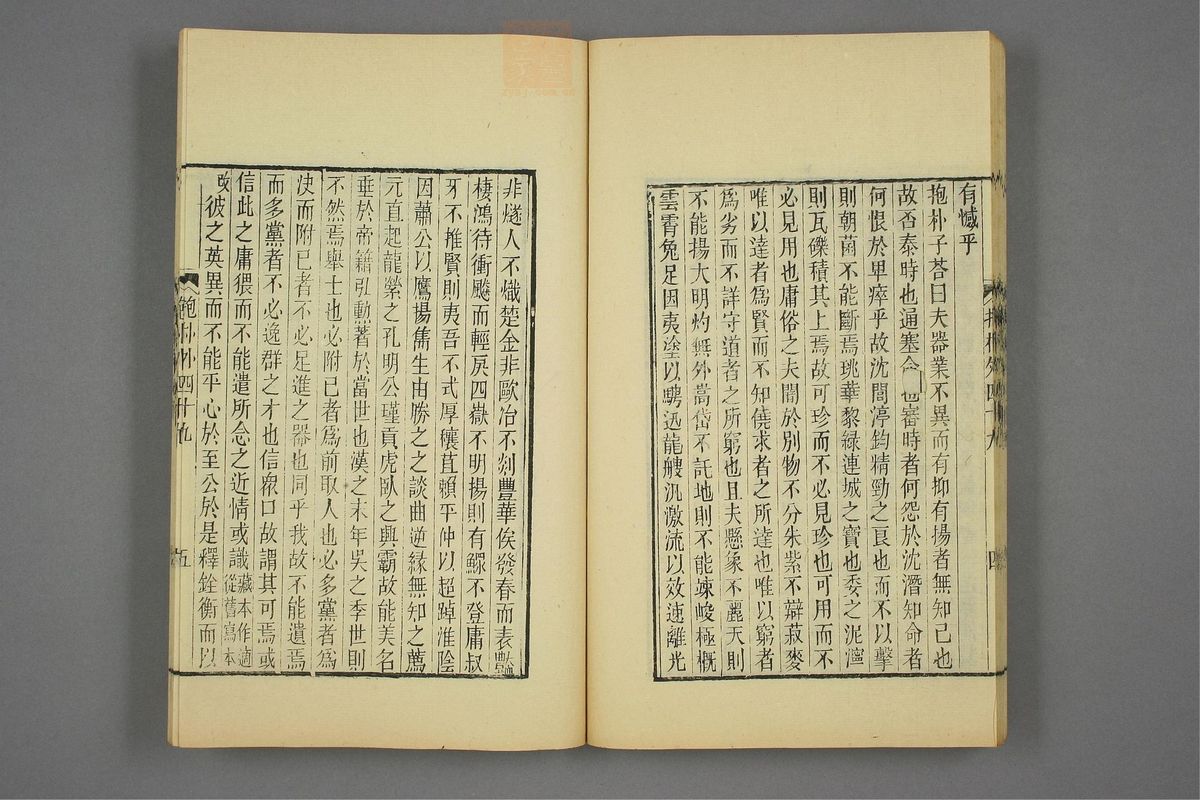 有憾乎
抱朴子荅曰夫器業不異而有抑有揚者無知己也
故否泰時也通塞命也審時者何怨於沈潛知命者
何恨於卑瘁乎故沈閭渟鈞精勁之良也而不以擊
則朝菌不能斷焉珧華黎緑連城之寶也委之泥濘
則瓦礫積其上焉故可珍而不必見珍也可用而不
必見用也庸俗之夫闇於別物不分朱紫不辯菽麥
唯以達者為賢而不知僥求者之所達也唯以窮者
為劣而不詳守道者之所窮也且夫懸象不麗天則
不能揚大明灼無外嵩岱不託地則不能竦峻極概
雲霄兔足因夷塗以騁迅龍艘汎激流以效速離光
四
非燧人不熾楚金非歐冶不剡豐華俟發春而表豔
棲鴻待衝飈而輕戾四嶽不明揚則有鰥不登庸叔
牙不推賢則夷吾不式厚穰苴賴平仲以超踔淮陰
因蕭公以鷹揚雋生由勝之之談曲逆緣無知之薦
元直起龍縈之孔明公瑾貢虎臥之興霸故能美名
垂於帝籍引勳著於當世也漢之末年吳之季世則
不然焉舉士也必附已者為前取人也必多黨者為
决而附已者不必足進之器也同乎我故不能遺焉
而多黨者不必逸群之才也信衆口故謂其可焉或
信此之庸猥而不能遣所念之近情或識藏本作適從舊寫本
改彼之英異而不能平心於至公於是釋銓衡而以
抱朴外四十九
五